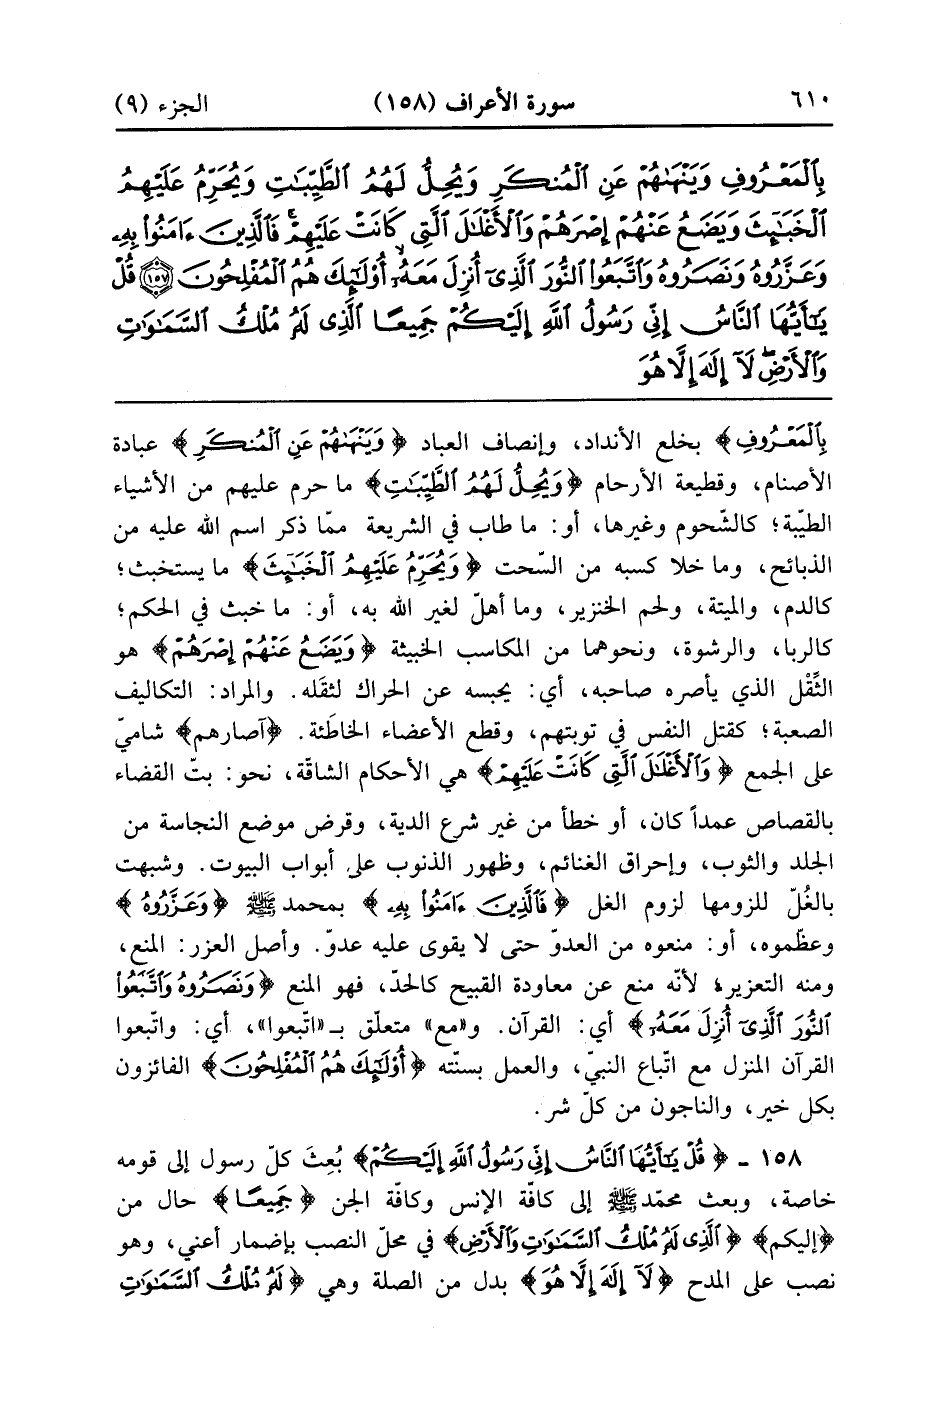 ٦١٠ سورة الأعراف (١٥٨) الجزء (٩)
بِٱلْمَعْرُوفِ وَيَنْهَىٰهُمْ عَنِ ٱلْمُنكَرِ وَيُحِلُّ لَهُمُ ٱلطَّيِّبَٰتِ وَيُحَرِّمُ عَلَيْهِمُ
ٱلْخَبَٰٓئِثَ وَيَضَعُ عَنْهُمْ إِصْرَهُمْ وَٱلْأَغْلَٰلَ ٱلَّتِى كَانَتْ عَلَيْهِمْ ۚ فَٱلَّذِينَ ءَامَنُوا۟ بِهِۦ
وَعَزَّرُوهُ وَنَصَرُوهُ وَٱتَّبَعُوا۟ ٱلنُّورَ ٱلَّذِىٓ أُنزِلَ مَعَهُۥٓ ۙ أُو۟لَٰٓئِكَ هُمُ ٱلْمُفْلِحُونَ ﴿١٥٧﴾ قُلْ
يَٰٓأَيُّهَا ٱلنَّاسُ إِنِّى رَسُولُ ٱللَّهِ إِلَيْكُمْ جَمِيعًا ٱلَّذِى لَهُۥ مُلْكُ ٱلسَّمَٰوَٰتِ
وَٱلْأَرْضِ ۖ لَآ إِلَٰهَ إِلَّا هُوَ
بِٱلْمَعْرُوفِ﴾ بخلع الأنداد، وإنصاف العباد ﴿وَيَنْهَىٰهُمْ عَنِ ٱلْمُنكَرِ﴾ عبادة
الأصنام، وقطيعة الأرحام ﴿وَيُحِلُّ لَهُمُ ٱلطَّيِّبَٰتِ﴾ ما حرم عليهم من الأشياء
الطيّبة؛ كالشّحوم وغيرها، أو: ما طاب في الشريعة ممّا ذكر اسم الله عليه من
الذبائح، وما خلا كسبه من السّحت ﴿وَيُحَرِّمُ عَلَيْهِمُ ٱلْخَبَٰٓئِثَ﴾ ما يستخبث؛
كالدم، والميتة، ولحم الخنزير، وما أهلّ لغير الله به، أو: ما خبث في الحكم؛
كالربا، والرشوة، ونحوهما من المكاسب الخبيثة ﴿وَيَضَعُ عَنْهُمْ إِصْرَهُمْ﴾ هو
الثِّقْل الذي يأصره صاحبه، أي: يحبسه عن الحراك لثقَله. والمراد: التكاليف
الصعبة؛ كقتل النفس في توبتهم، وقطع الأعضاء الخاطَئة. ﴿آصارهم﴾ شاميّ
على الجمع ﴿وَٱلْأَغْلَٰلَ ٱلَّتِى كَانَتْ عَلَيْهِمْ﴾ هي الأحكام الشاقّة، نحو: بتّ القضاء
بالقصاص عمداً كان، أو خطأ من غير شرع الدية، وقرض موضع النجاسة من
الجلد والثوب، وإحراق الغنائم، وظهور الذنوب على أبواب البيوت. وشبهت
بالغُلّ للزومها لزوم الغل ﴿فَٱلَّذِينَ ءَامَنُوا۟ بِهِۦ﴾ بمحمد ﷺ ﴿وَعَزَّرُوهُ﴾
وعظّموه، أو: منعوه من العدوّ حتى لا يقوى عليه عدوّ. وأصل العزر: المنع،
ومنه التعزير؛ لأنّه منع عن معاودة القبيح كالحدّ، فهو المنع ﴿وَنَصَرُوهُ وَٱتَّبَعُوا۟
ٱلنُّورَ ٱلَّذِىٓ أُنزِلَ مَعَهُۥٓ﴾ أي: القرآن. و«مع» متعلّق بـ«اتّبعوا»، أي: واتّبعوا
القرآن المنزل مع اتّباع النبيّ، والعمل بسنّته ﴿أُو۟لَٰٓئِكَ هُمُ ٱلْمُفْلِحُونَ﴾ الفائزون
بكل خير، والناجون من كلّ شر.
١٥٨ - ﴿قُلْ يَٰٓأَيُّهَا ٱلنَّاسُ إِنِّى رَسُولُ ٱللَّهِ إِلَيْكُمْ﴾ بُعِثَ كلّ رسول إلى قومه
خاصة، وبعث محمّد ﷺ إلى كافّة الإنس وكافّة الجن ﴿جَمِيعًا﴾ حال من
﴿إليكم﴾ ﴿ٱلَّذِى لَهُۥ مُلْكُ ٱلسَّمَٰوَٰتِ وَٱلْأَرْضِ﴾ في محلّ النصب بإضمار أعني، وهو
نصب على المدح ﴿لَآ إِلَٰهَ إِلَّا هُوَ﴾ بدل من الصلة وهي ﴿لَهُۥ مُلْكُ ٱلسَّمَٰوَٰتِ